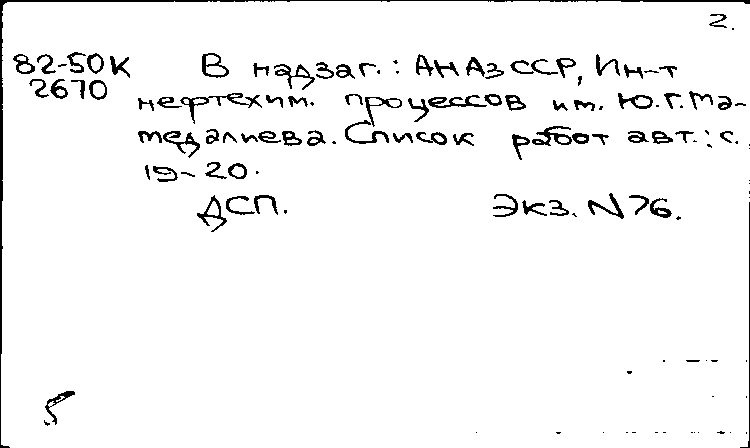 2.
82-50К В надзаг.: АН АзССР, Ин-т
2670 нефтехим. процессов им. Ю.Г.Ма-
медалиева. Список работ авт.: с.
19-20.
ДСП. Экз. N76.
5